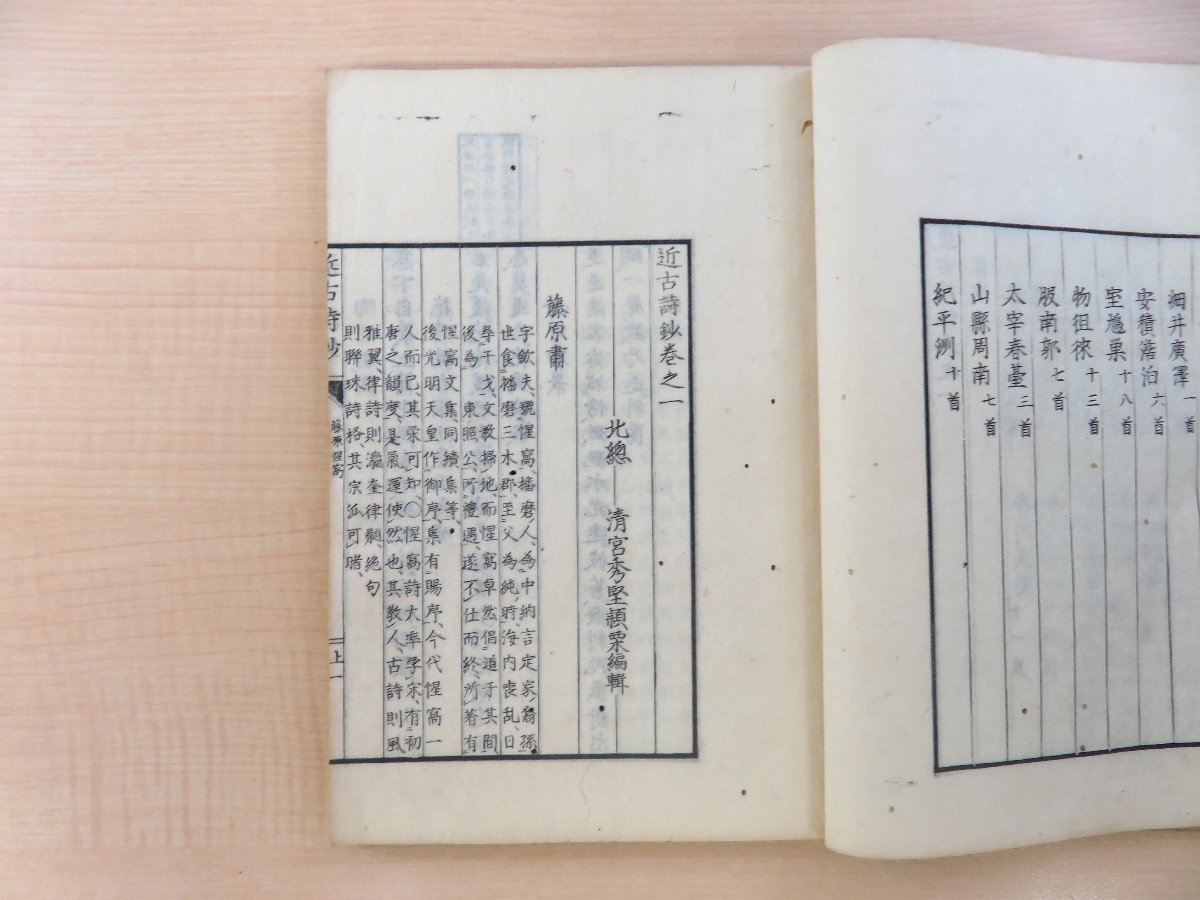 細井廣澤 一首
安積澹泊 六首
室鳩巣 十八首
物徂徠 十三首
服南郭 七首
太宰春臺 三首
山縣周南 七首
紀平洲 十首
近古詩鈔巻之一
北總 清宮秀堅穎栗編輯
藤原肅
字歛夫、號惺窩、播磨人、為中納言定家裔孫、
世食播磨三木郡、至父為純、時海内喪乱日
尋干戈、文教掃地、而惺窩卓然倡道于其間、
後為 東照公所禮遇、遂不仕而終、所著有
惺窩文集、同續集等、
後光明天皇作御序、集有賜序、今代惺窩一
人而已、其栄可知、〇惺窩詩大率学宋、有初
唐之韻度、是氣運使然也、其教人、古詩則風
雅翼、律詩則瀛奎律髓、絶句
則聯珠詩格、其宗派可睹、
近古詩鈔
藤原惺窩
上一